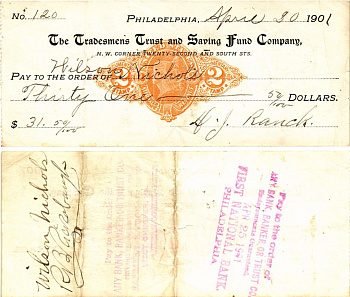 No. 120 PHILADELPHIA, April 30 1901
The Tradesmens Trust and Saving Fund Company,
N. W. CORNER TWENTY-SECOND AND SOUTH STS.
PAY TO THE ORDER OF Wilson Nichols
2 2
Thirty One 50/100 DOLLARS.
$ 31. 50/100 H. J. Ranck.
Wilson Nichols
Pay to the order of
ANY BANK, BANKER OR TRUST CO.
FIRST
NATIONAL BANK,
PHILADELPHIA